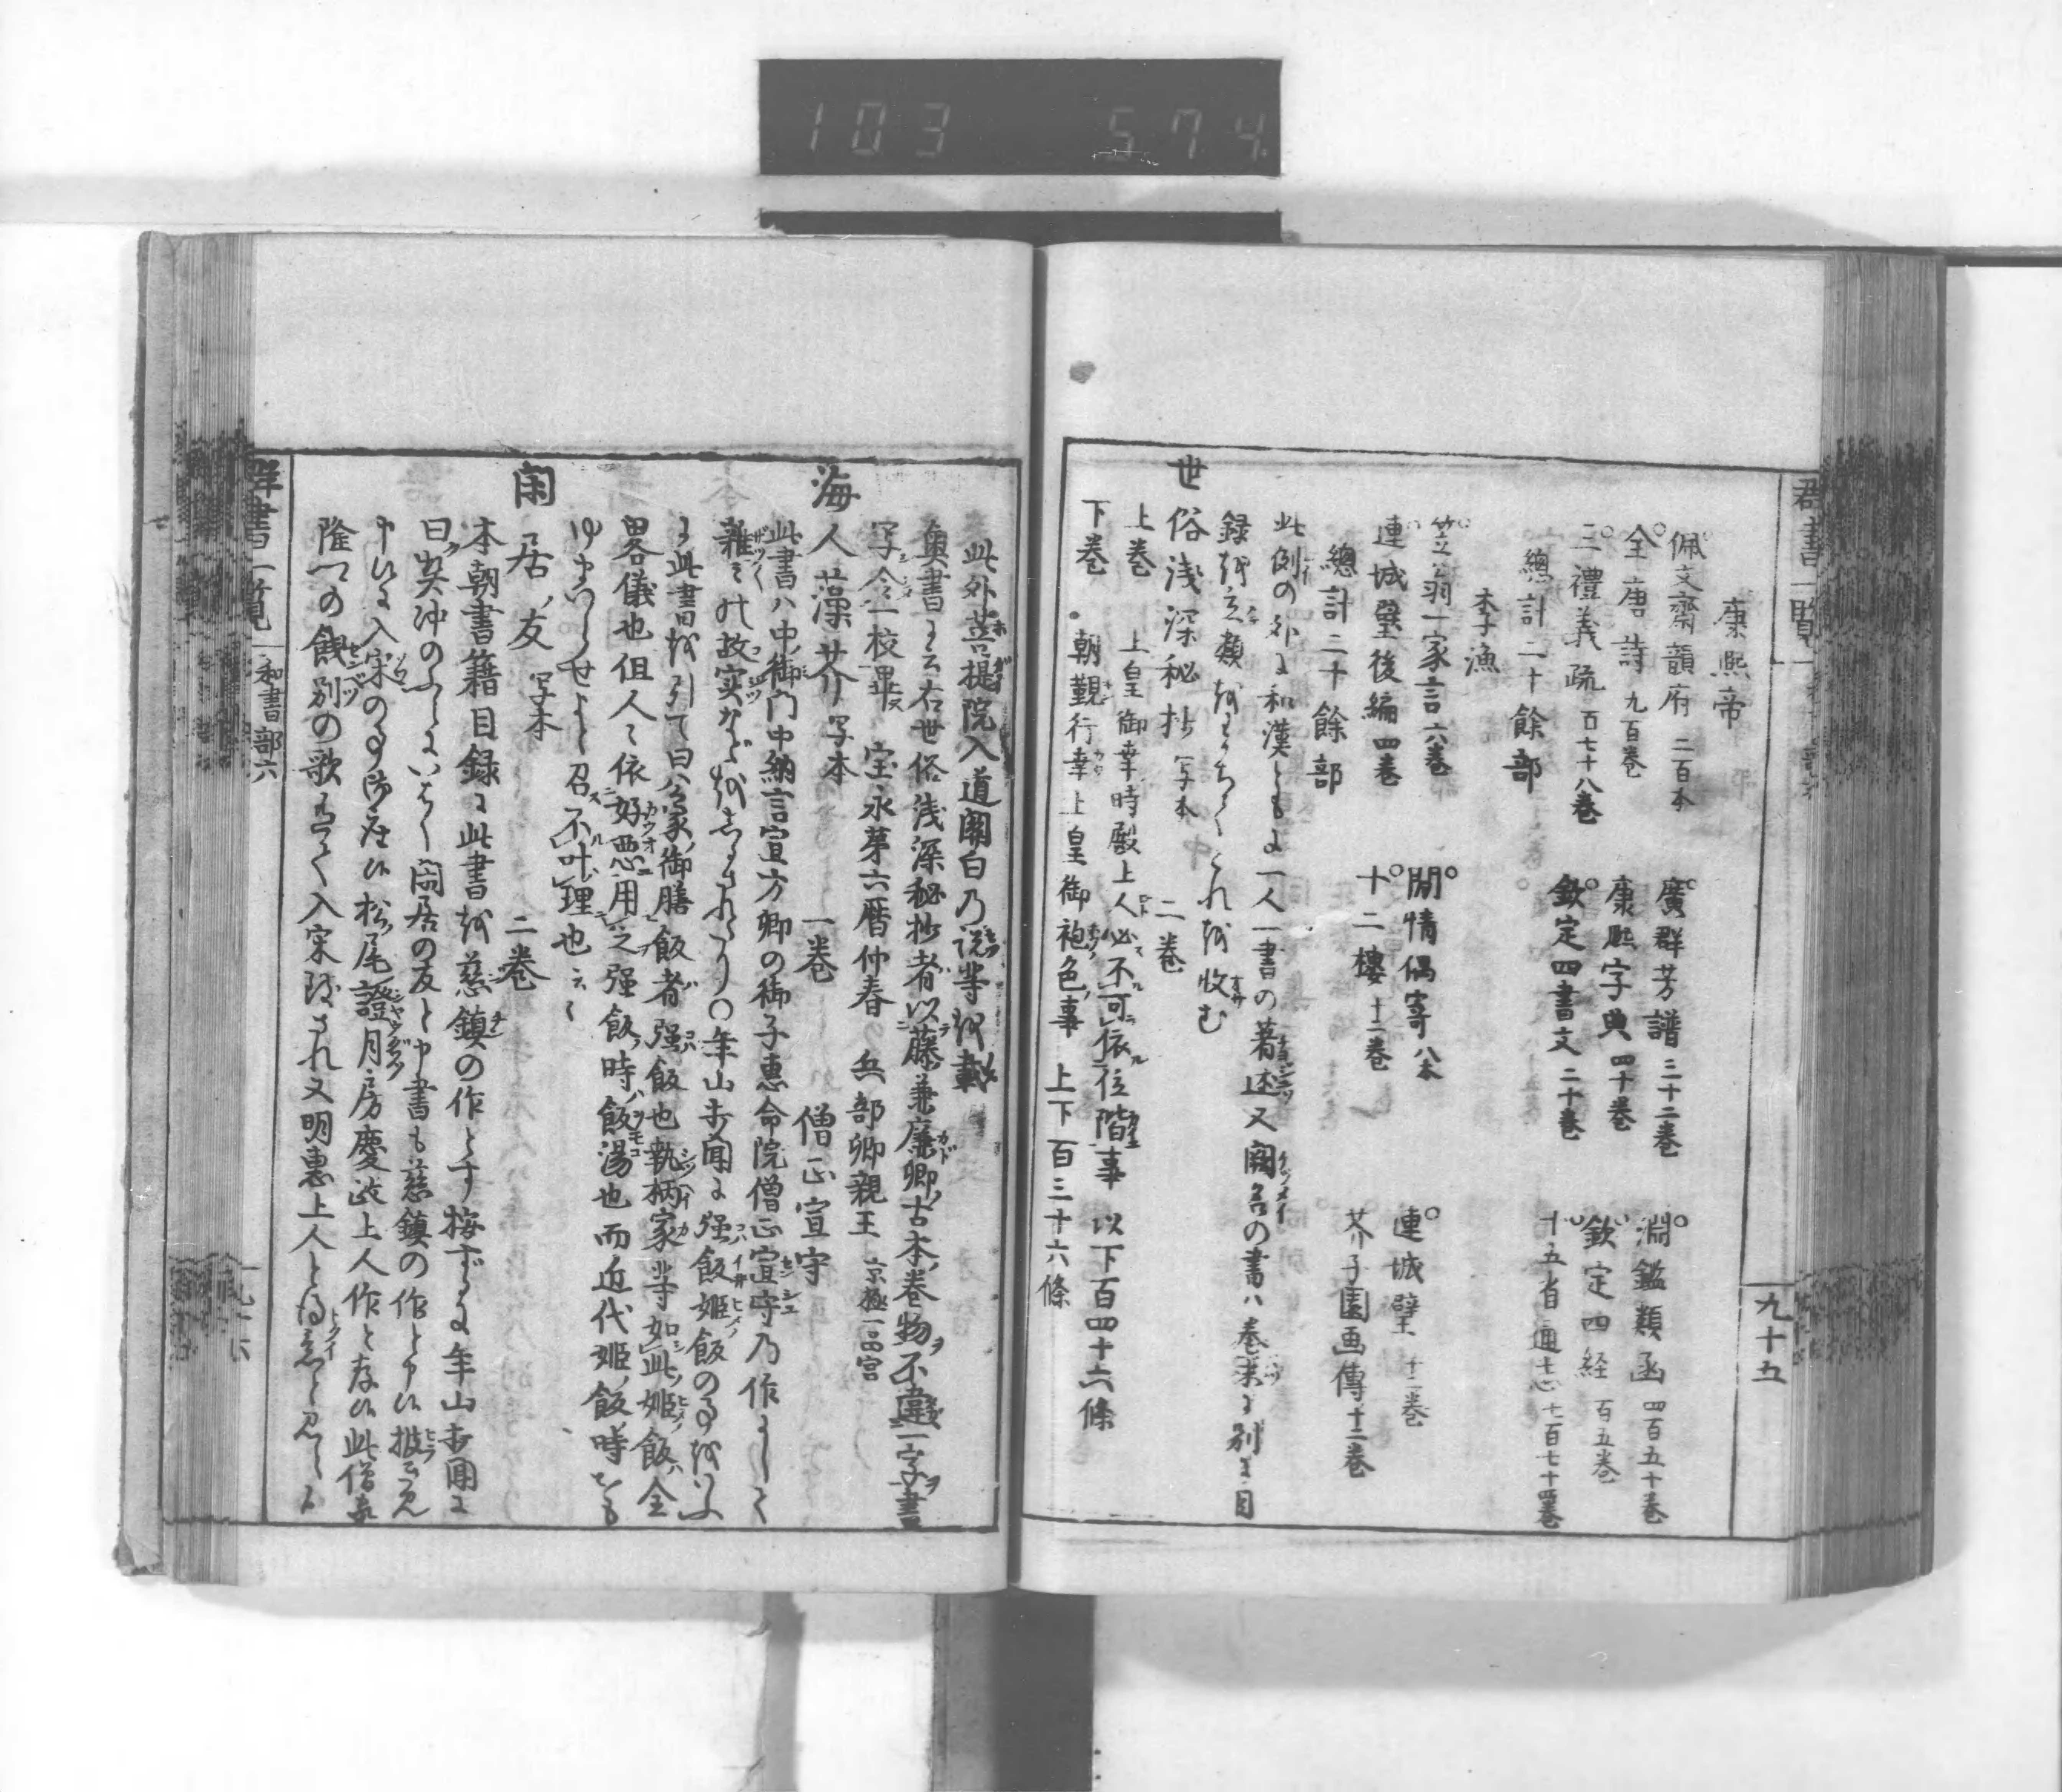 103 574
群書一覧
九十五
康熙帝
佩文齋韻府 二百本 廣群芳譜 三十二巻 淵鑑類函 四百五十巻
全唐詩 九百巻 康熙字典 四十巻 欽定四経 百五巻
三禮義疏 百七十八巻 欽定四書文 二十巻 十五省通志 七百七十四巻
總計二十餘部
李漁
笠翁一家言 六巻 閒情偶寄 八本 連城璧 十二巻
連城璧後編 四巻 十二樓 十二巻 芥子園画傳 十二巻
總計二十餘部
此例の外に和漢ともに一人一書の著述又闕名の書ハ巻末に別に目
録を立類をわかちてこれを收む
世俗浅深秘抄 写本 二巻
上巻 上皇御幸時殿上人必不可依位階事 以下百四十六條
下巻 朝覲行幸上皇御袍色事 上下百三十六條
此外菩提院入道關白乃説等を載
奥書に云右世俗浅深秘抄者以藤兼廉卿古本巻物不違一字書
写令一校畢 宝永第六暦仲春 兵部卿親王 京極一品宮
海人藻芥 写本 一巻 僧正宣守
此書ハ中御门中納言宣方卿の御子惠命院僧正宣守乃作にして
雜〻の故実などをしるされたり〇年山打聞に强飯姫飯の事をいふ
に此書を引て曰公家御膳飯者强飯也執柄家等如此姫飯ハ全
畧儀也但人〻依好悪用之强飯時ハ飯湯也而近代姫飯時も
ゆまいらせよと召不叶理也云〻
閑居友 写本 二巻
本朝書籍目録に此書を慈鎮の作とす按ずるに年山打聞に
曰契沖のふミにいはく閑居の友と申書も慈鎮の作と申候披見
申候に入宋の事御座候松尾證月房慶政上人作と存候此僧
隆一の餞別の歌 入宋 され又明惠上人と見 
群書一覧
和書部六
九十六